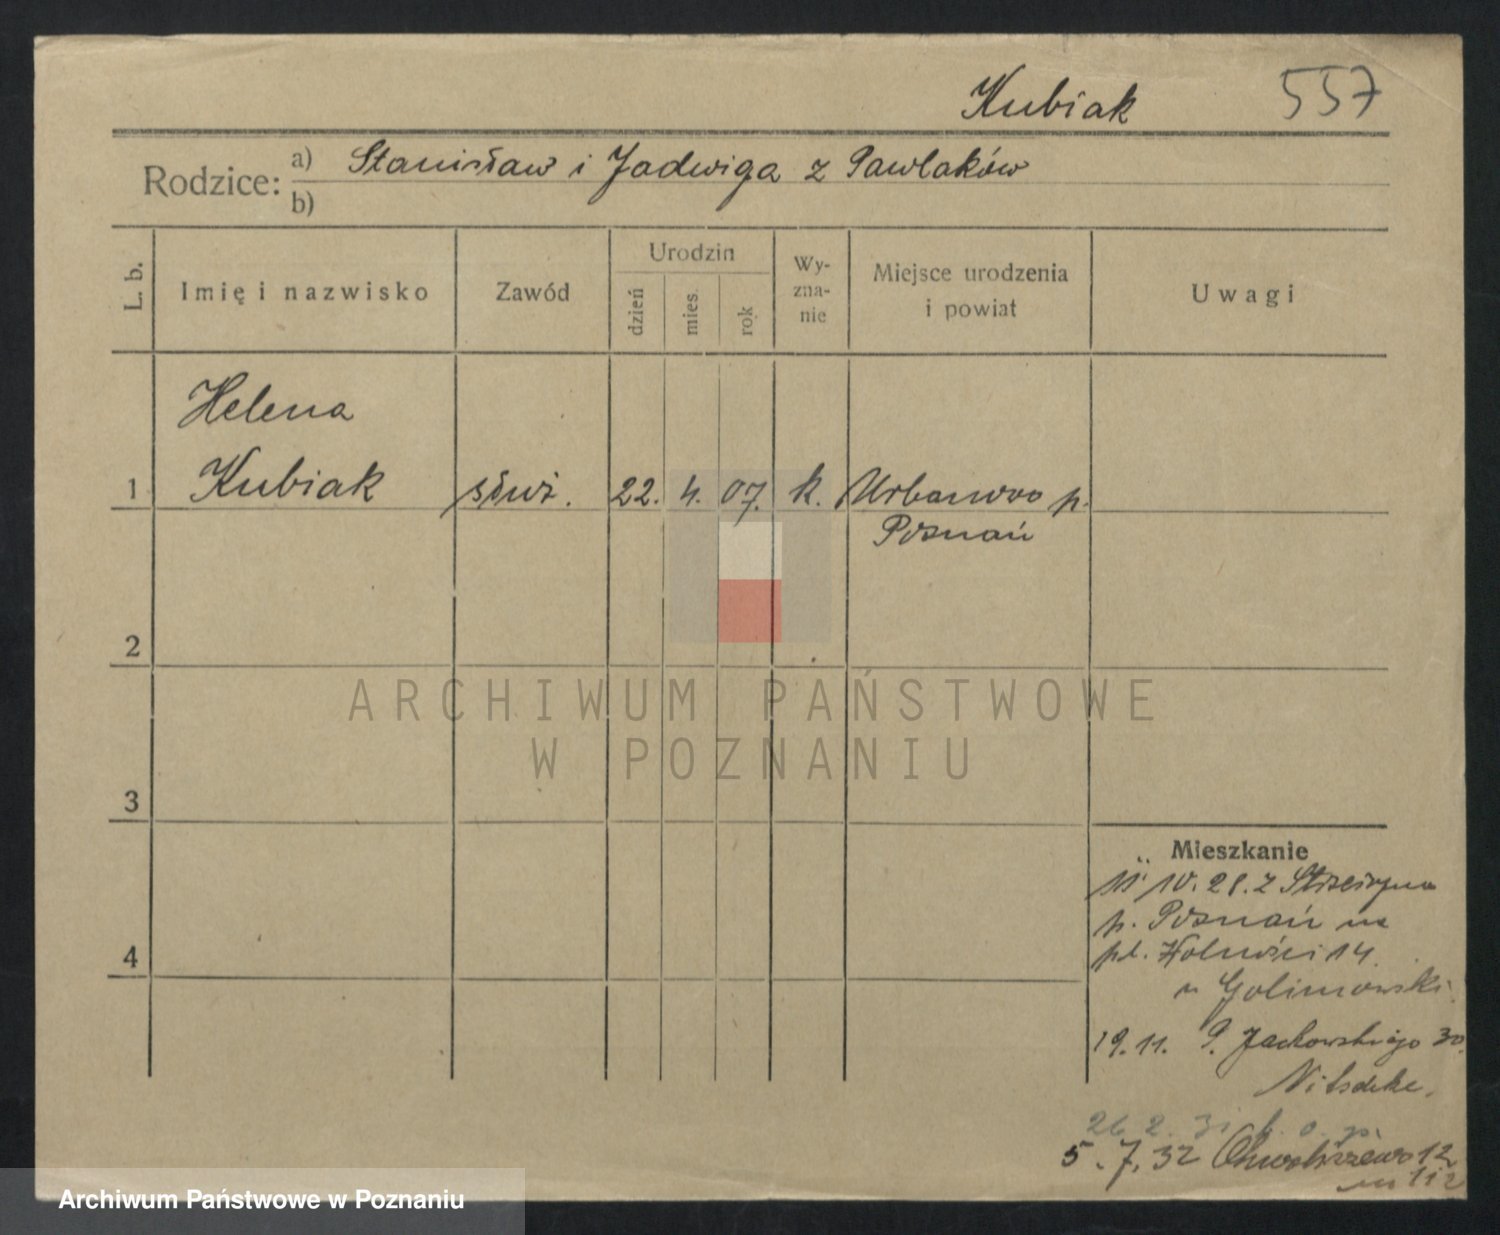 Kubiak 557
Rodzice: a) Stanisław i Jadwiga z Pawlaków
b)
L. b. Imię i nazwisko Zawód Urodzin dzień mies. rok Wy-zna-nie Miejsce urodzenia i powiat Uwagi
Helena
1 Kubiak służ. 22. 4. 07. k. Urbanowo p.
Poznań
2
ARCHIWUM PAŃSTWOWE
W POZNANIU
3
Mieszkanie
10. 28. z
p. Poznań na
4 pl. Wolności 14.
u Golimowski
19. 11. P. Jackowskiego 30.
Nitschke.
26 2. 31
5. 7. 32 Chwaliszewo 12
m 112
Archiwum Państwowe w Poznaniu